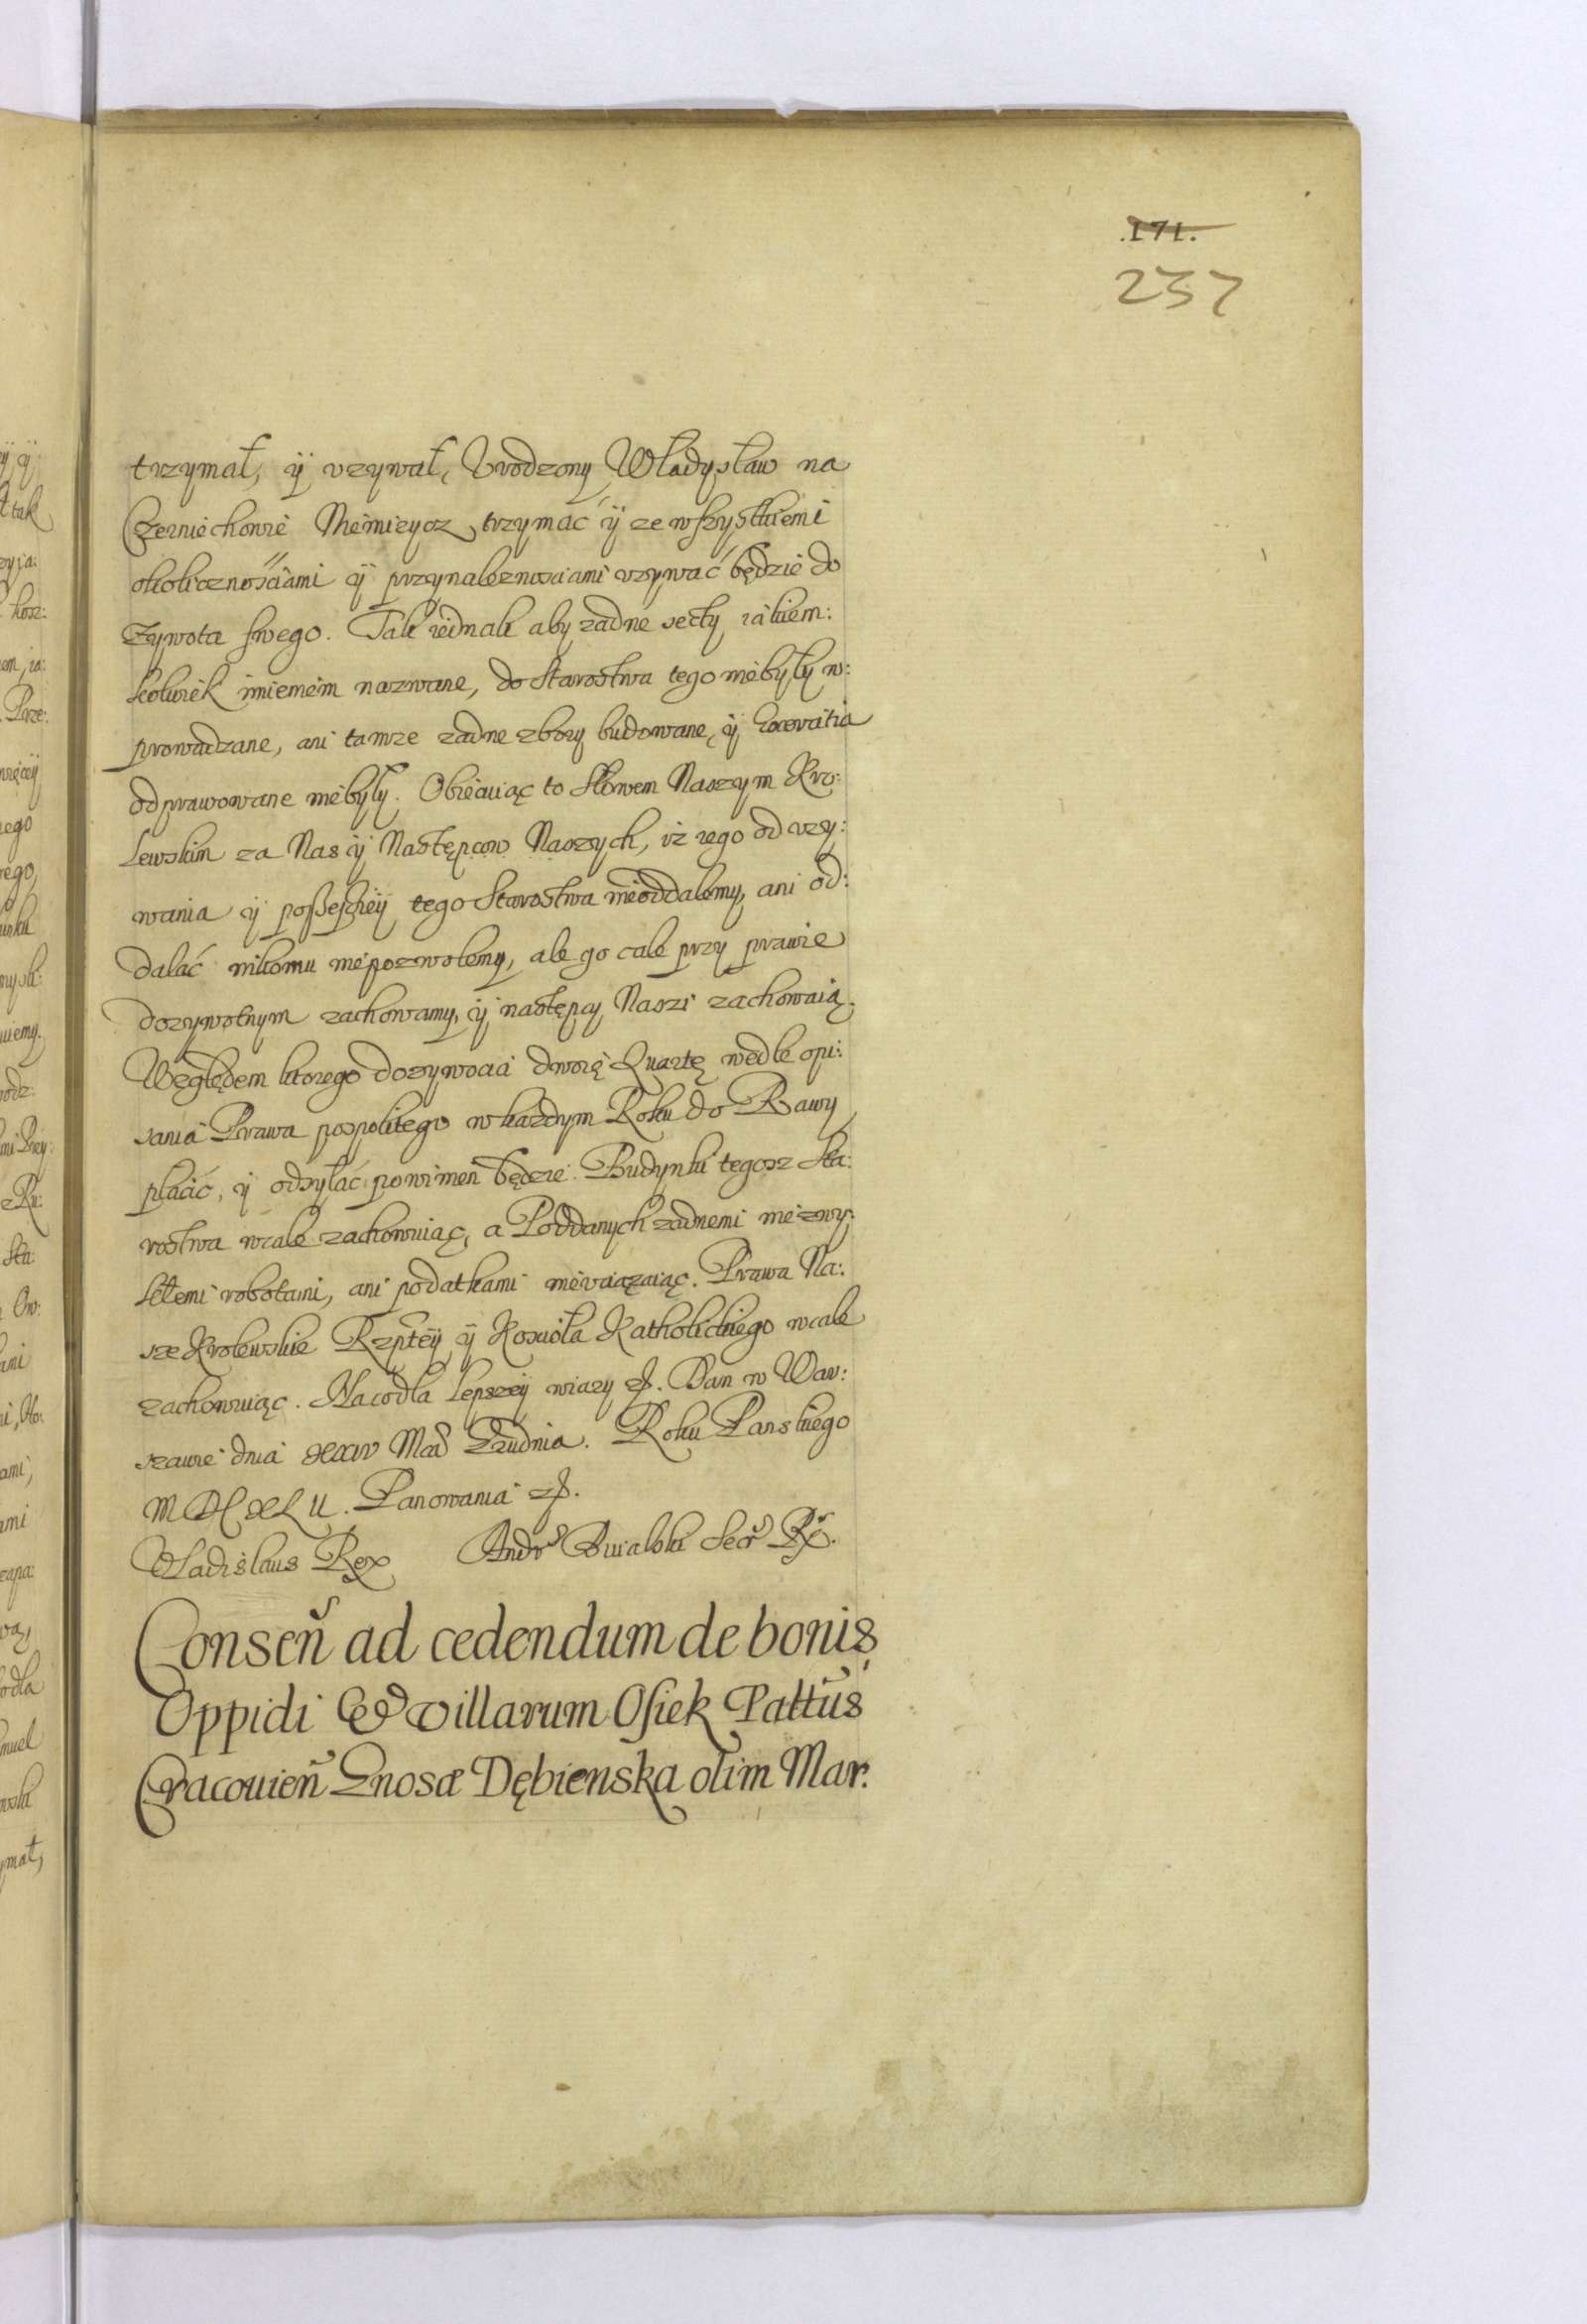 .171.
237
trzymał, ÿ vzywał, Vrodzony Władysław na
Czerniechowie Niemieycz trzymać ÿ ze wszystkiemi
okolicznościami ÿ przynaleznosciami vzywać będzie do
Zywota swego. Tak iednak aby zadne sekty iakiem:
kolwiek imieniem nazwane, do Starostwa tego niebyły w:
prowadzane, ani tamze zadne zbory budowane, ÿ exercitia
odprawowane niebyły. Obiecuiąc to Słowem Naszym Kro:
Lewskim za Nas ÿ Następcow Naszych, iż iego od vzy:
wania ÿ possessÿeÿ tego Starostwa nieoddalemy, ani od:
dalać nikomu niepozwolemy, ale go cale przy prawie
dozywotnym zachowamy, ÿ następcy Naszi zachowaią.
Względem ktorego dozywocia dwoię Quartę wedle opi:
sania Prawa pospolitego w kazdym Roku do Rawy
płacić, ÿ odsyłać powinien będzie. Budynki tegosz Sta:
rostwa wcale zachowuiąc, a Poddanych zadnemi niezwy:
kłemi robotami, ani podatkami nievciązaiąc. Prawa Na:
sze Krolewskie Rzptey ÿ Kosciola Katholickiego wcale
zachowuiąc. Na co dla lepszeÿ wiary &. Dan w War:
szawie dnia XXIV Mca Grudnia. Roku Panskiego
MDCXLII. Panowania &.
Vladislaus Rex Andrs Bialski Secr R.
Consen̄s ad cedendum de bonis
Oppidi & villarum Osiek Pattus
Cracouien̄ Gnosæ Dębienska olim Mar.